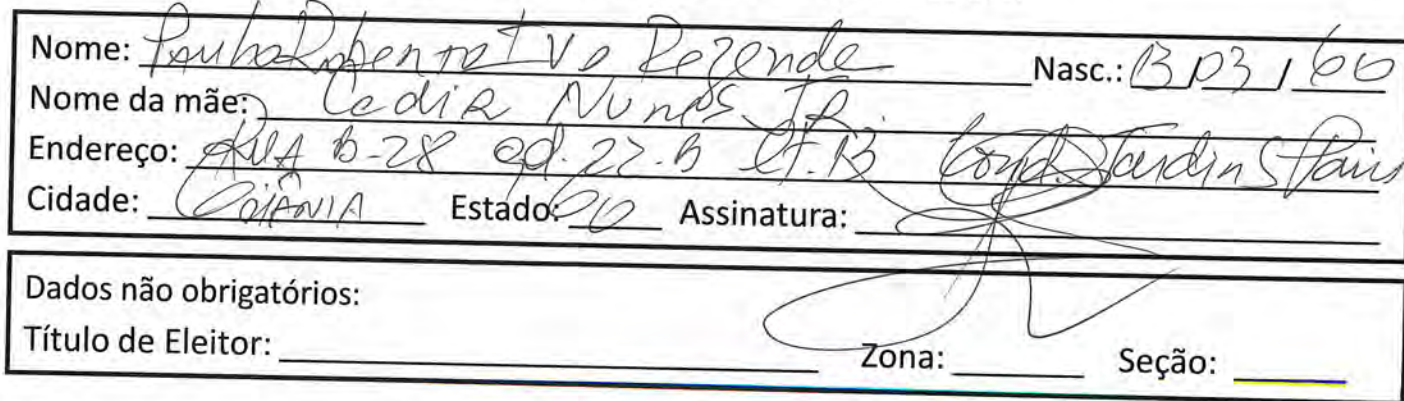 Nome: Paulo Roberto I Vo Rezende Nasc.: 13/03/60
Nome da mãe: Ledia Nunes
Endereço: B-28 qd. 22-B Lt. 13 Cond. Jardins Paris
Cidade: Goiânia Estado: GO Assinatura:
Dados não obrigatórios:
Título de Eleitor: Zona: Seção: